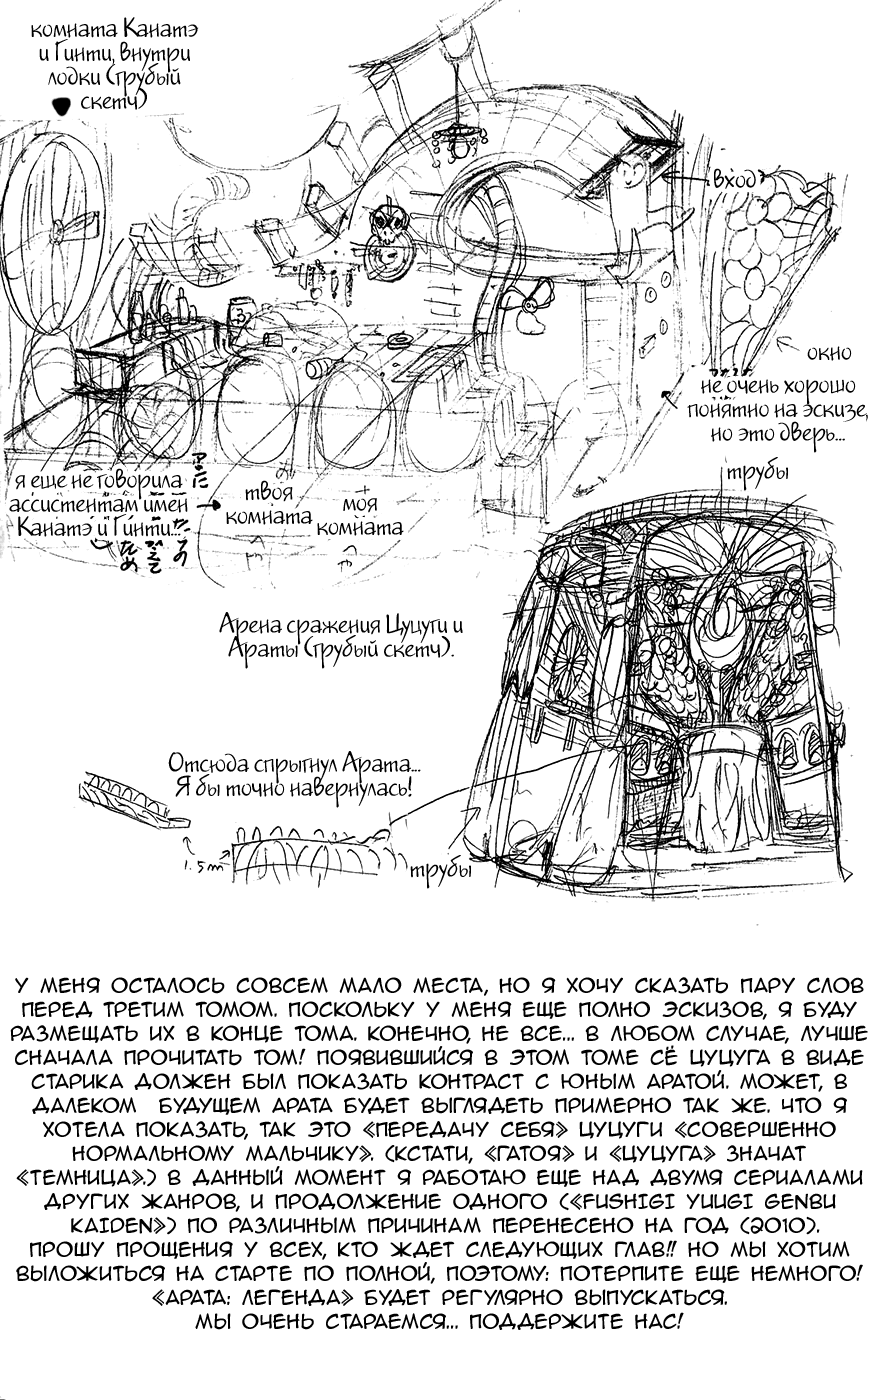 комната Канатэ
и Гинти, внутри
лодки (грубый
скетч)
вход
окно
не очень хорошо
понятно на эскизе,
но это дверь...
трубы
я еще не говорила
ассистентам имен
Канатэ и Гинти...
твоя
комната
моя
комната
Арена сражения Цуцуги и
Араты (грубый скетч).
Отсюда спрыгнул Арата...
Я бы точно навернулась!
1.5m
трубы
У МЕНЯ ОСТАЛОСЬ СОВСЕМ МАЛО МЕСТА, НО Я ХОЧУ СКАЗАТЬ ПАРУ СЛОВ
ПЕРЕД ТРЕТИМ ТОМОМ. ПОСКОЛЬКУ У МЕНЯ ЕЩЕ ПОЛНО ЭСКИЗОВ, Я БУДУ
РАЗМЕЩАТЬ ИХ В КОНЦЕ ТОМА. КОНЕЧНО, НЕ ВСЕ... В ЛЮБОМ СЛУЧАЕ, ЛУЧШЕ
СНАЧАЛА ПРОЧИТАТЬ ТОМ! ПОЯВИВШИЙСЯ В ЭТОМ ТОМЕ СЁ ЦУЦУГА В ВИДЕ
СТАРИКА ДОЛЖЕН БЫЛ ПОКАЗАТЬ КОНТРАСТ С ЮНЫМ АРАТОЙ. МОЖЕТ, В
ДАЛЕКОМ БУДУЩЕМ АРАТА БУДЕТ ВЫГЛЯДЕТЬ ПРИМЕРНО ТАК ЖЕ. ЧТО Я
ХОТЕЛА ПОКАЗАТЬ, ТАК ЭТО «ПЕРЕДАЧУ СЕБЯ» ЦУЦУГИ «СОВЕРШЕННО
НОРМАЛЬНОМУ МАЛЬЧИКУ». (КСТАТИ, «ГАТОЯ» И «ЦУЦУГА» ЗНАЧАТ
«ТЕМНИЦА».) В ДАННЫЙ МОМЕНТ Я РАБОТАЮ ЕЩЕ НАД ДВУМЯ СЕРИАЛАМИ
ДРУГИХ ЖАНРОВ, И ПРОДОЛЖЕНИЕ ОДНОГО («FUSHIGI YUUGI GENBU
KAIDEN») ПО РАЗЛИЧНЫМ ПРИЧИНАМ ПЕРЕНЕСЕНО НА ГОД (2010).
ПРОШУ ПРОЩЕНИЯ У ВСЕХ, КТО ЖДЕТ СЛЕДУЮЩИХ ГЛАВ!! НО МЫ ХОТИМ
ВЫЛОЖИТЬСЯ НА СТАРТЕ ПО ПОЛНОЙ, ПОЭТОМУ: ПОТЕРПИТЕ ЕЩЕ НЕМНОГО!
«АРАТА: ЛЕГЕНДА» БУДЕТ РЕГУЛЯРНО ВЫПУСКАТЬСЯ.
МЫ ОЧЕНЬ СТАРАЕМСЯ... ПОДДЕРЖИТЕ НАС!